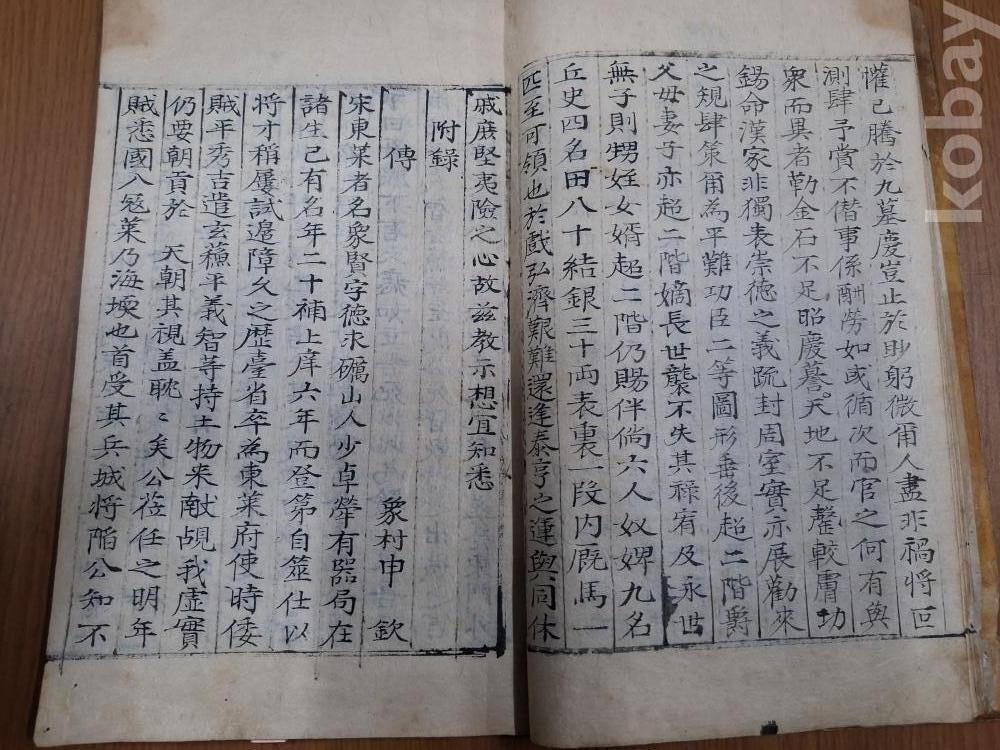 懽已騰於九墓慶豈止於眇躬微甭人盡非禍將叵
測肆予賞不僣事係酬勞如或循次而官之何有與
衆而異者勒金石不足昭慶謩天地不足罄較膚功
錫命漢家非獨表崇德之義䟽封周室實亦展勸來
之規肆策甭為平難功臣二等圖形垂後超二階爵
父母妻子亦超二階嫡長世襲不失其祿宥及永世
無子則甥姪女婿超二階仍賜伴倘六人奴婢九名
丘史四名田八十結銀三十兩表裏一段內廐馬一
匹至可領也於戲弘濟艱難還逢泰亨之運與同休
戚庶堅夷險之心故玆教示想宜知悉
附錄
傳 象村申欽
宋東萊者名象賢字德求礪山人少卓犖有器局在
諸生已有名年二十補上庠六年而登第自筮仕以
將才稱屢試邉障久之歷臺省卒為東萊府使時倭
賊平秀吉遣玄蘓平義智等持土物来献覘我虛實
仍要朝貢於 天朝其視盖眈〻矣公莅任之明年
賊悉國入宼萊乃海堧也首受其兵城將陷公知不
kobay